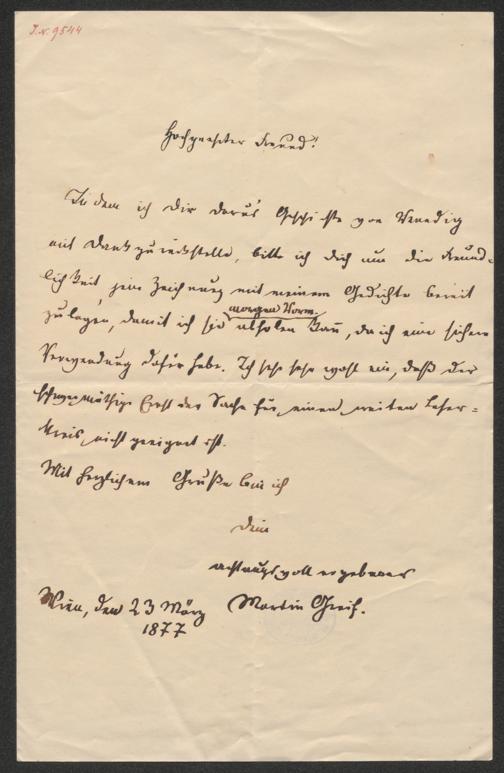 J.N. 9544
Hochgeehrter Freund!
In dem ich Dir Darus Geschichte von Venedig
mit Dank zurückstelle, bitte ich Dich um die Freund-
lichkeit jene Zeichnung mit meinem Gedichte bereit
zu legen, damit ich sie morgen Vorm. abholen kann, da ich eine sichere
Verwendung dafür habe. Ich sehe sehr wohl ein, daß der
schwermüthige Ernst der Sache für einen weiten Leser=
kreis nicht geeignet ist.
Mit herzlichem Gruße bin ich
Dein
achtungsvoll ergebener
Martin Greif.
Wien, den 23 März
1877